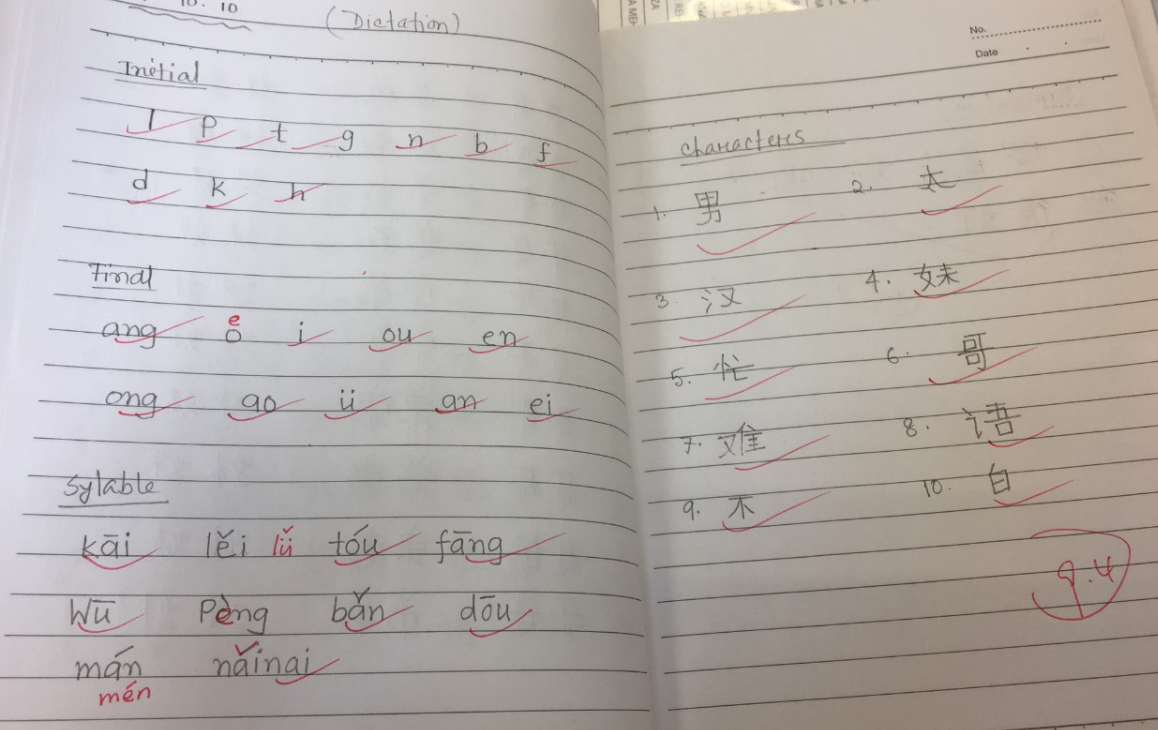 10. 10
(Dictation)
Initial
l p t g n b f
d k h
Final
ang o i ou en
e
ong ao ü an ei
Sylable
kāi lěi lǚ tóu fāng
Wū Pèng bǎn dōu
mán nǎinai
mén
No.
Date
Characters
1. 男 2. 太
3. 汉 4. 妹
5. 忙 6. 哥
7. 难 8. 语
9. 不 10. 白
9.4